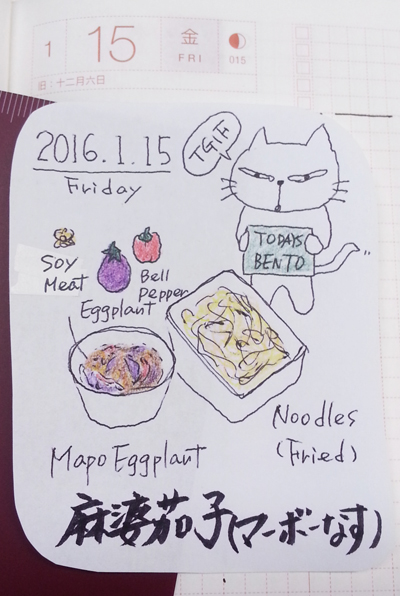 1 15 金
FRI 015
旧:十二月六日
2016.1.15
Friday
TGIF
TODAYS
BENTO
Soy
Meat
Eggplant
Bell
Pepper
Mapo Eggplant
Noodles
(Fried)
麻婆茄子(マーボーなす)